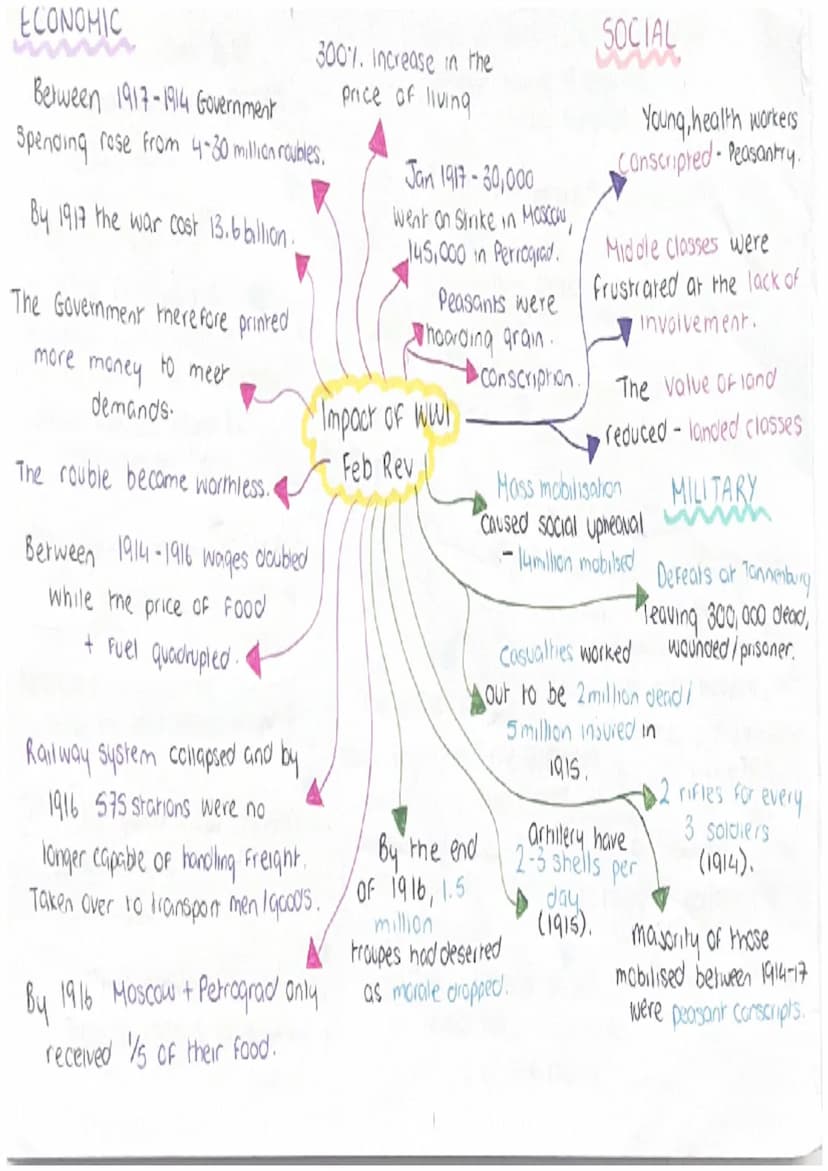 ECONOMIC
Between 1917-1914 Government
Spending rose from 4-30 million roubles.
By 1917 the war cost 13.6 billion.
The Government therefore printed
more money to meet
demands.
The rouble became worthless.
Between 1914-1916 wages doubled
while the price of food
+ fuel quadrupled.
Railway system collapsed and by
1916 575 stations were no
longer capable of handling freight.
Taken over to transport men/goods.
By 1916 Moscow + Petrograd only
received 1/5 of their food.
300% increase in the
price of living
Jan 1917 - 30,000
went on strike in Moscow,
145,000 in Petrograd.
Peasants were
hoarding grain.
conscription.
Impact of WW1
Feb Rev
SOCIAL
Young, health workers
conscripted - Peasantry.
Middle classes were
frustrated at the lack of
involvement.
The value of land
reduced - landed classes
MILITARY
Mass mobilisation
caused social upheaval
- 14 million mobilised
Defeats at Tannenburg
leaving 300,000 dead,
wounded/prisoner.
Casualties worked
out to be 2 million dead/
5 million insured in
1915.
2 rifles for every
3 soldiers
(1914).
artillery have
2-3 shells per
day
(1915).
By the end
of 1916, 1.5
million
troupes had deserted
as morale dropped.
majority of those
mobilised between 1914-17
were peasant conscripts.